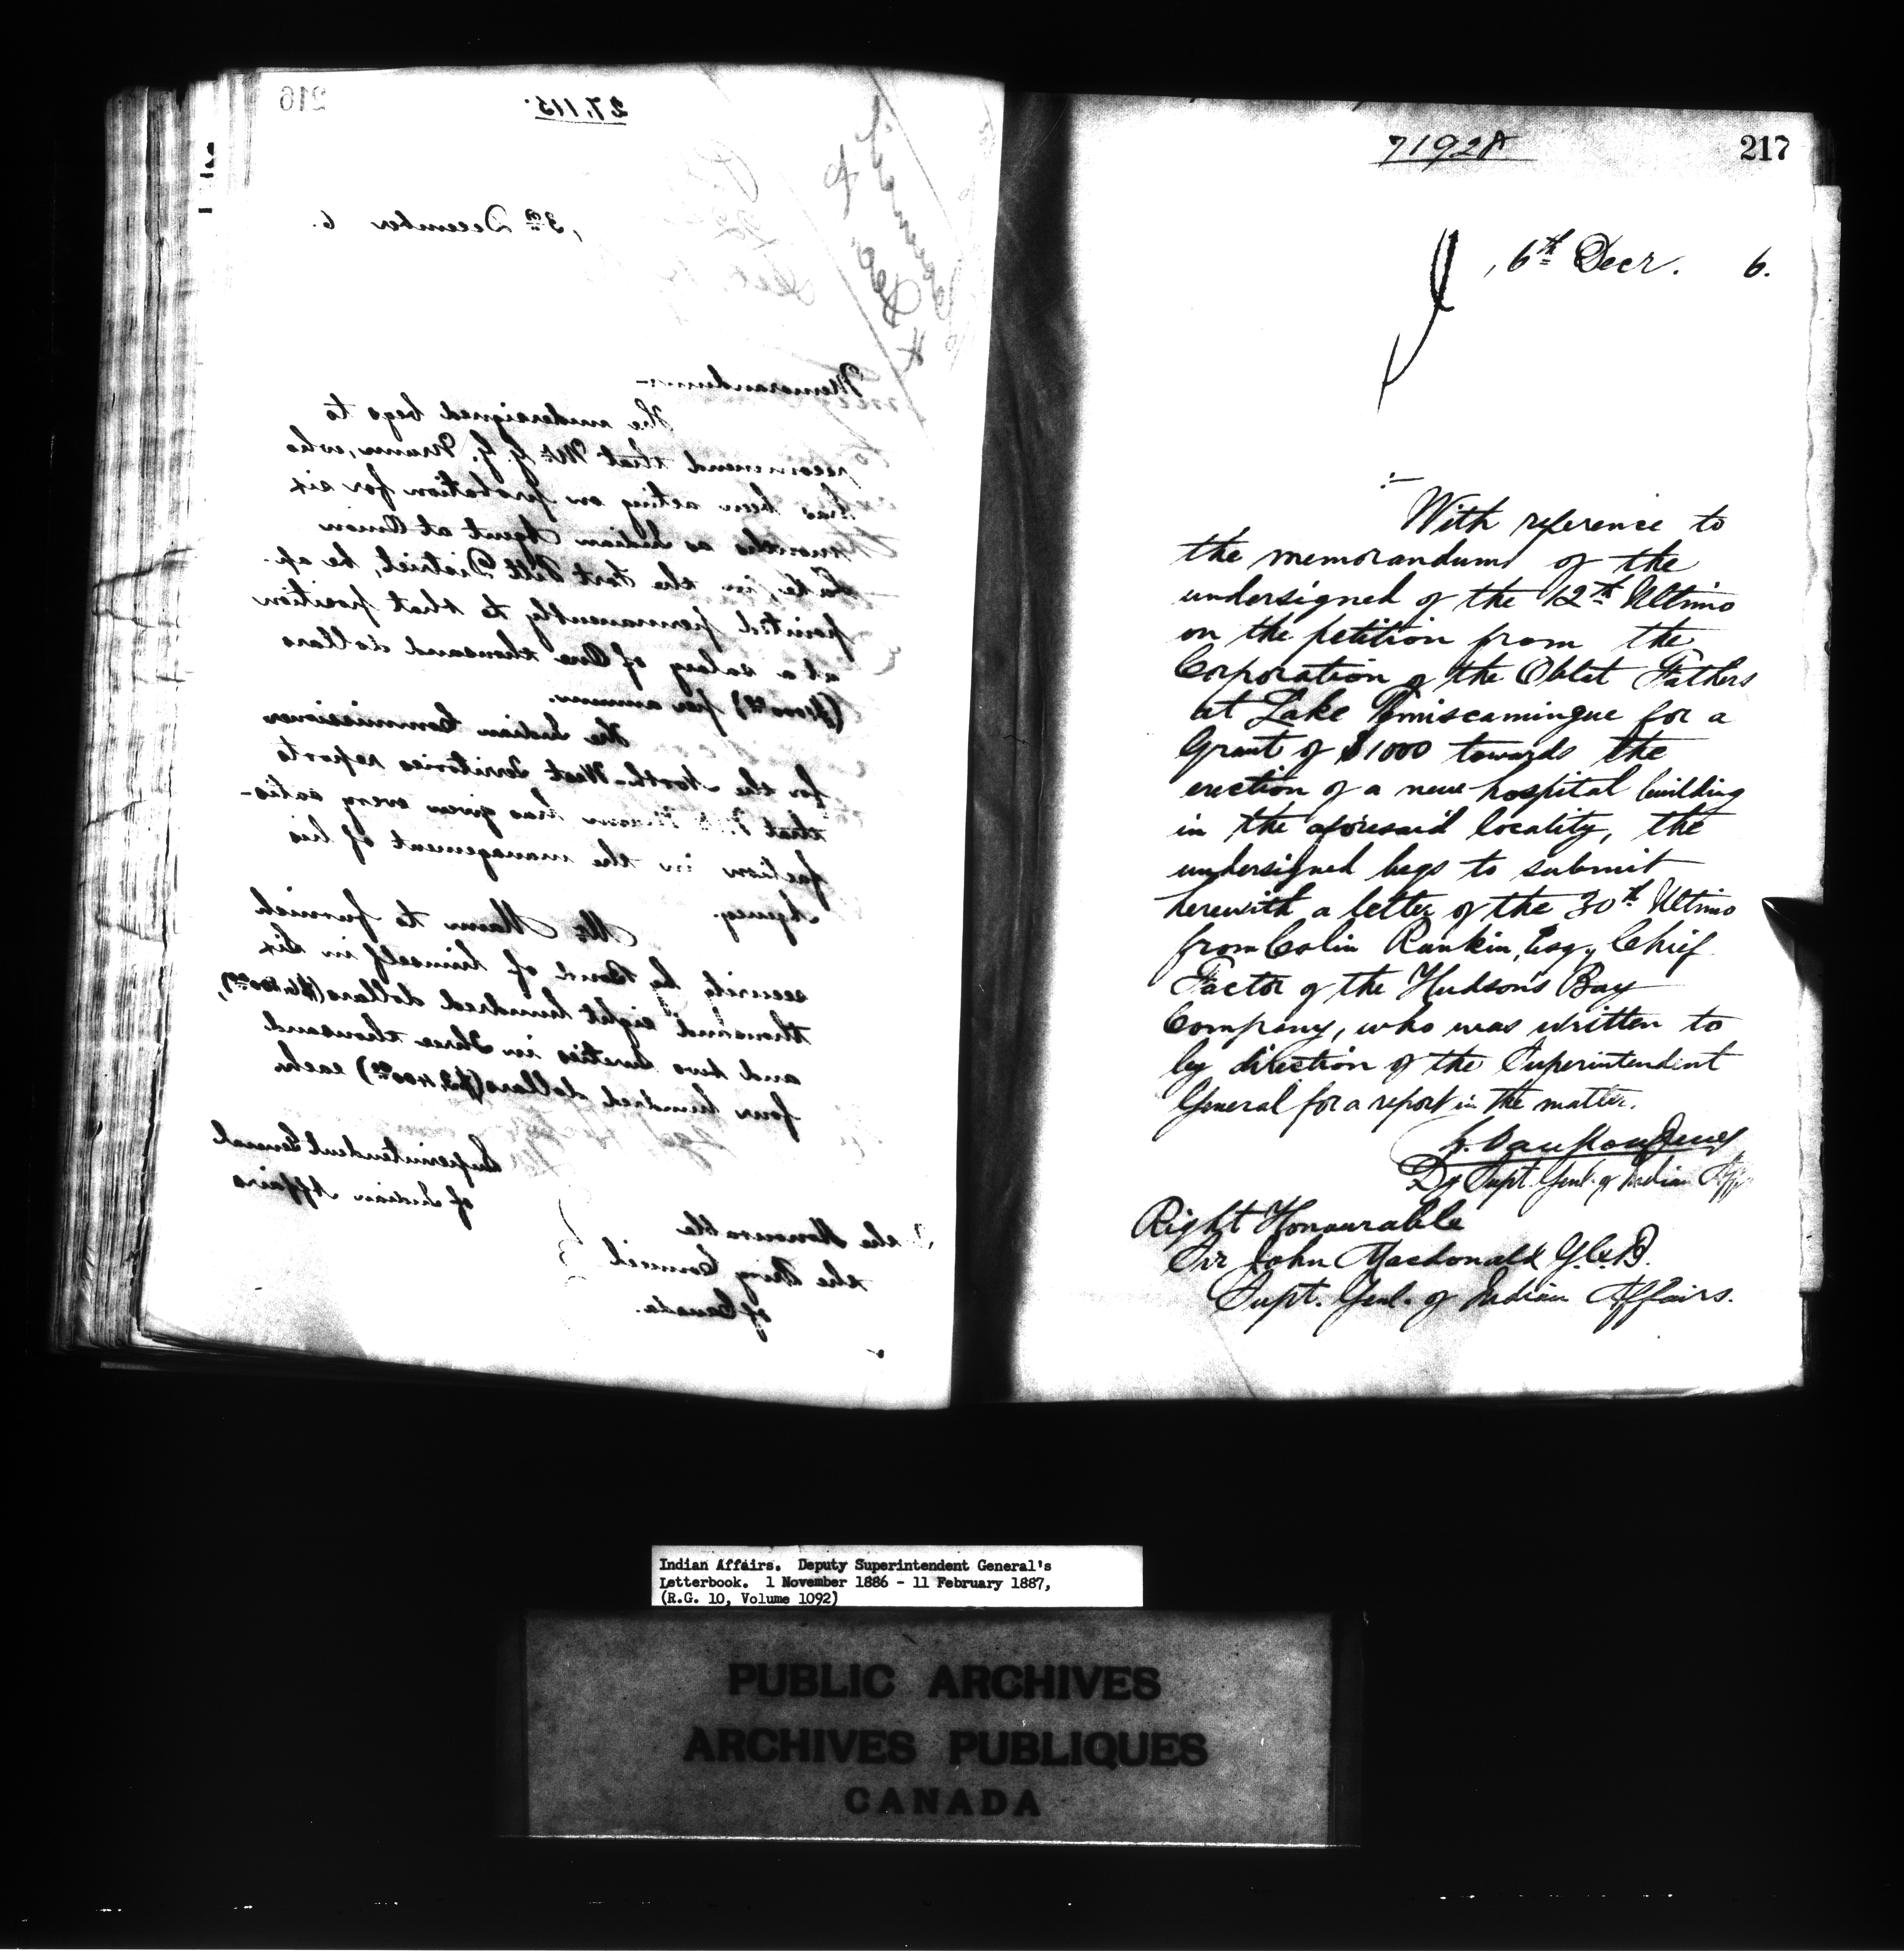 216
27,115.
, 3rd December 6.
Memorandum:-
The undersigned begs to
recommend that Mr. G. G. Mann, who
has been acting on probation for six
months as Indian Agent at Onion
Lake, in the Fort Pitt District, be ap-
pointed permanently to that position
at a salary of One thousand dollars
per annum.
The Indian Commissioner
for the North-West Territories reports
that Mr. Mann has given every satis-
faction in the management of his
Agency.
Mr. Mann to furnish
security by Bond of himself in six
thousand eight hundred dollars
and two sureties in Three thousand
four hundred dollars ($3,400.00) each.
Superintendent General
of Indian Affairs
the Honourable
the Privy Council
of Canada.
71928
217
, 6th Decr. 6.
:-
With reference to
the memorandum of the
undersigned of the 12th Ultimo
on the petition from the
Corporation of the Oblat Fathers
at Lake Temiscamingue for a
Grant of $1000 towards the
erection of a new hospital building
in the aforesaid locality, the
undersigned begs to submit
herewith a letter of the 30th Ultimo
from Colin Rankin, Esq., Chief
Factor of the Hudson's Bay
Company, who was written to
by direction of the Superintendent
General for a report in the matter.
L. Vankoughnet
Dy Supt. Genl. of Indian Aff
Right Honourable
Sir John Macdonald G.C.B.
Supt. Genl. of Indian Affairs.
Indian Affairs. Deputy Superintendent General's
Letterbook. 1 November 1886 - 11 February 1887,
(R.G. 10, Volume 1092)
PUBLIC ARCHIVES
ARCHIVES PUBLIQUES
CANADA